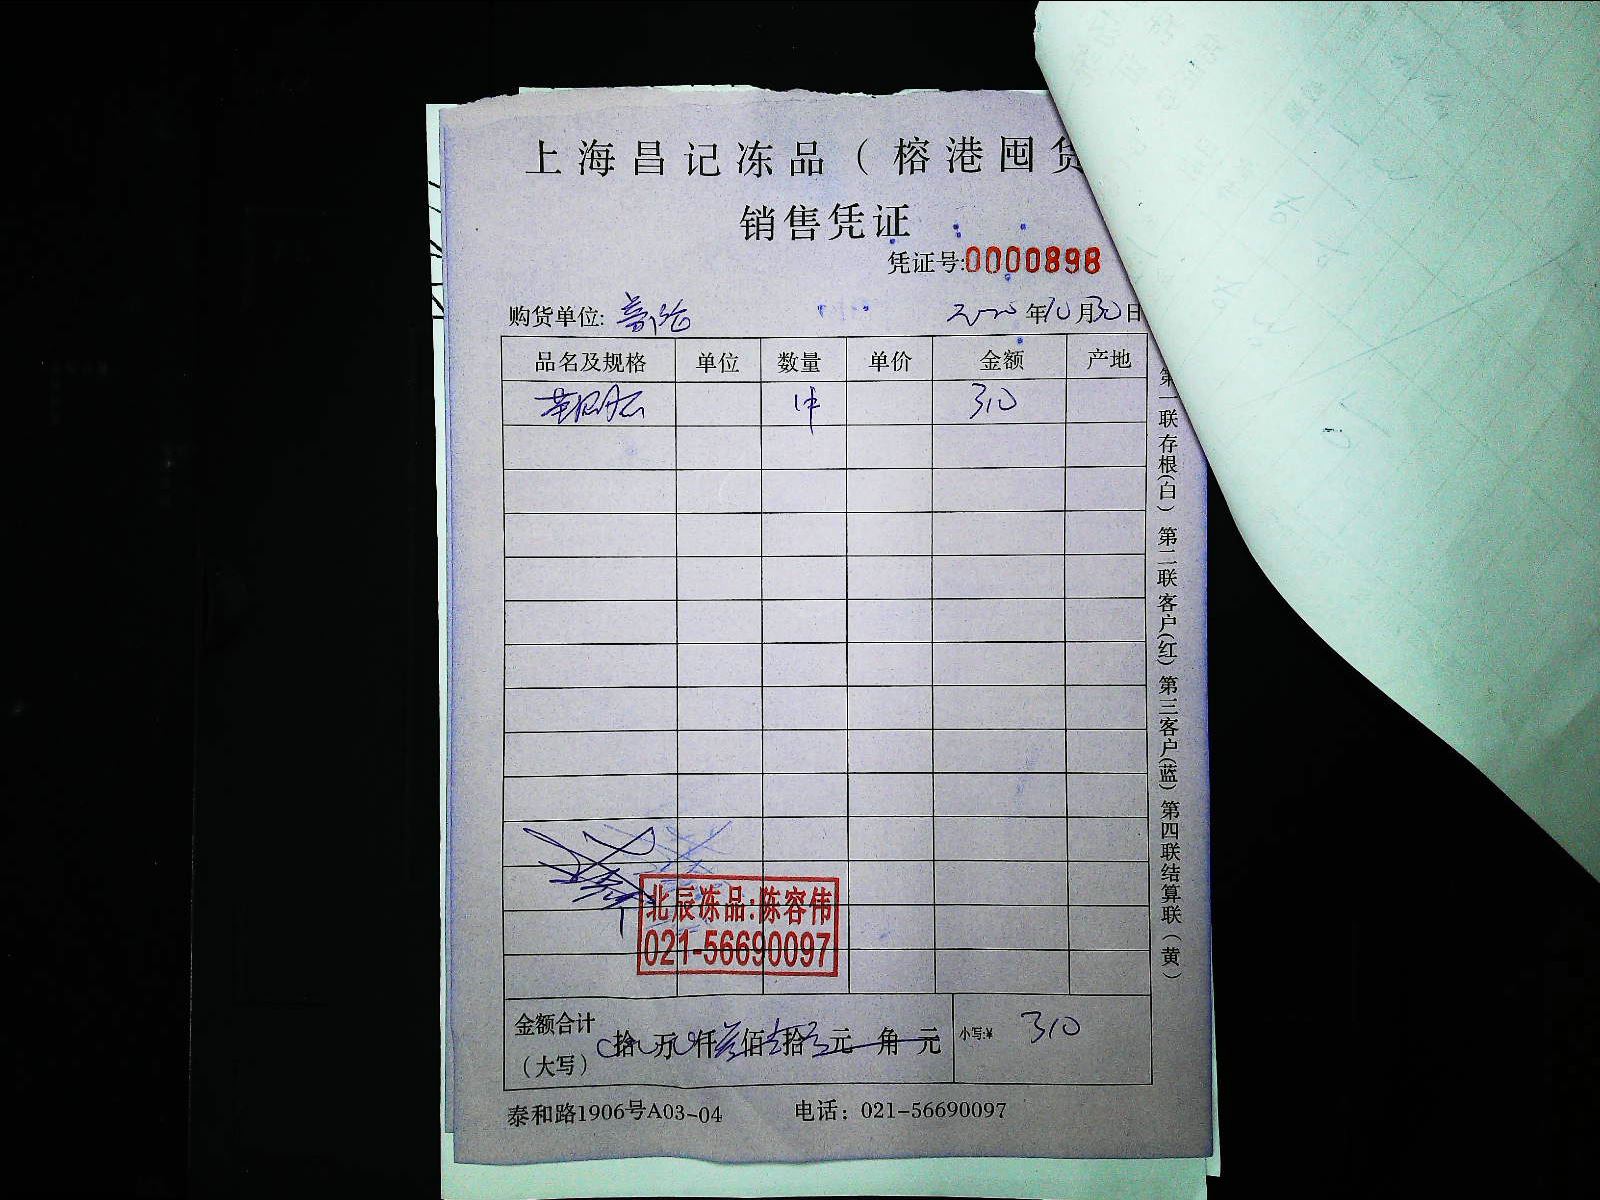 上海昌记冻品（榕港囤货
销售凭证
凭证号:0000898
购货单位: 2020年10月30日
品名及规格 单位 数量 单价 金额 产地
1件 310
第一联存根(白) 第二联客户(红) 第三客户(蓝) 第四联结算联(黄)
北辰冻品:陈容伟
021-56690097
金额合计
(大写) 拾 万 仟 叁佰 壹拾 元 角 元 小写:¥ 310
泰和路1906号A03-04 电话：021-56690097